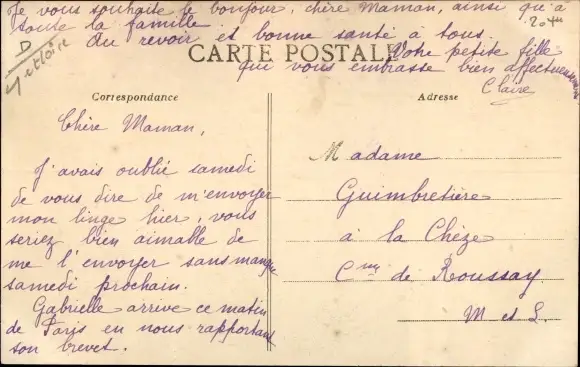 Je vous souhaite le bonjour, chère Maman, ainsi qu'à
toute la famille.
Au revoir et bonne santé à tous.
Votre petite fille
qui vous embrasse bien affectueusement
Claire
204
D
CARTE POSTALE
Correspondance
Chère Maman,
J'avais oublié samedi
de vous dire de m'envoyer
mon linge hier, vous
seriez bien aimable de
me l'envoyer sans manque
samedi prochain.
Gabrielle arrive ce matin
de Paris en nous rapportant
son brevet.
Adresse
Madame
Guimbretière
à la Chèze
Cne de Roussay
M et L.